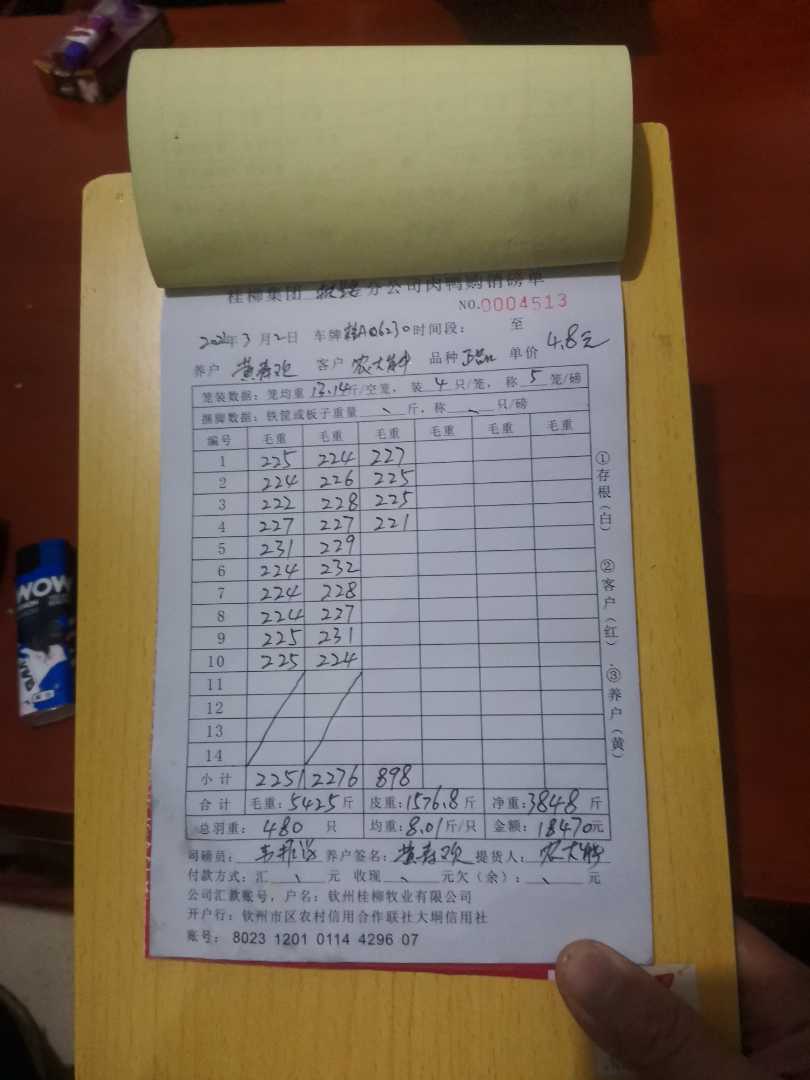 桂柳集团 分公司肉鸭购销磅单
NO.0004513
年3月2日 车牌桂A06230时间段： 至
养户 黄寿欢 客户 农大 品种 正品 单价 4.8元
笼装数据：笼均重 13.14斤/空笼，装 4 只/笼，称 5 笼/磅
捆脚数据：铁筐或板子重量 、 斤，称 、 只/磅
编号 毛重 毛重 毛重 毛重 毛重 毛重
1 225 224 227
2 224 226 225
3 222 228 225
4 227 227 221
5 231 229
6 224 232
7 224 228
8 224 227
9 225 231
10 225 224
11
12
13
14
小计 2251 2276 898
合计 毛重：5425斤 皮重：1576.8斤 净重：3848斤
总羽重： 480 只 均重：8.01斤/只 金额：18470元
司磅员： 养户签名：黄寿欢 提货人：农大
付款方式：汇 、 元 收现 、 元欠（余）： 、 元
公司汇款账号，户名：钦州桂柳牧业有限公司
开户行：钦州市区农村信用合作联社大垌信用社
账号： 8023 1201 0114 4296 07
①存根（白） ②客户（红） ③养户（黄）
WOW